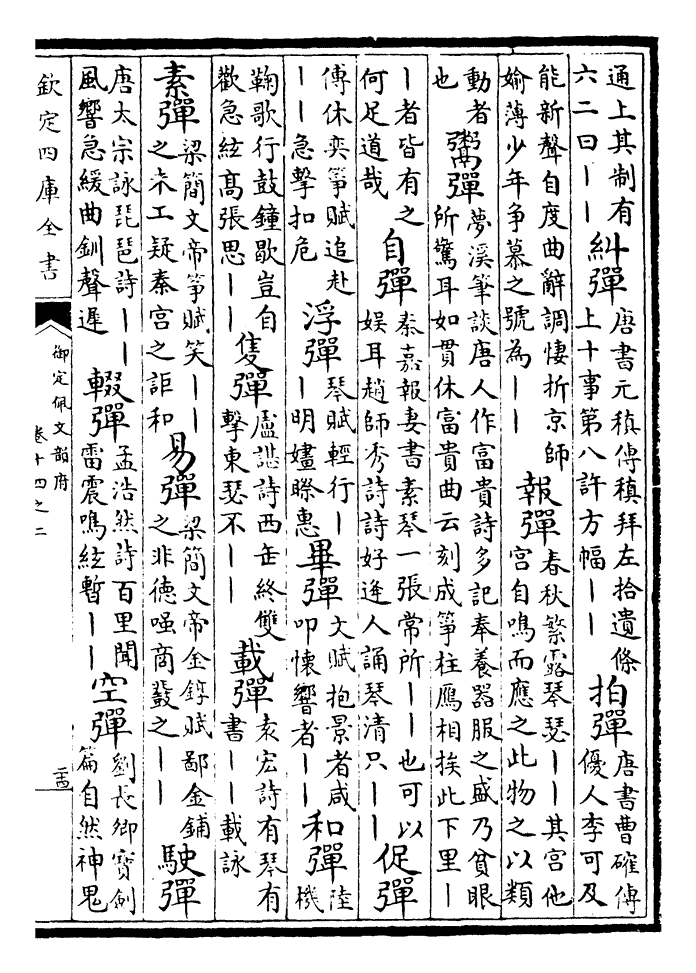 通上其制有
六二曰〡〡
糾彈
唐書元稹傳稹拜左拾遺條
上十事第八許方幅〡〡
拍彈
唐書曹確傳
優人李可及
能新聲自度曲辭調悽折京師
媮薄少年争慕之號為〡〡
報彈
春秋繁露琴瑟〡〡其宫他
宫自鳴而應之此物之以類
動者
也
鬻彈
夢溪筆談唐人作富貴詩多記奉養器服之盛乃貧眼
所驚耳如貫休富貴曲云刻成箏柱鴈相挨此下里〡
〡者皆有之
何足道哉
自彈
秦嘉報妻書素琴一張常所〡〡也可以
娱耳趙師秀詩詩好逢人誦琴清只〡〡
促彈
傅休奕箏賦追赴
〡〡急擊扣危
浮彈
琴賦輕行〡
〡明嫿㬠惠
畢彈
文賦抱景者咸
叩懷響者〡〡
和彈
陸
機
鞠歌行鼓鐘歇豈自
歡急絃髙張思〡〡
隻彈
盧諶詩西缶終雙
擊東瑟不〡〡
載彈
袁宏詩有琴有
書〡〡載詠
素彈
梁簡文帝箏賦笑〡〡
之未工疑秦宫之詎和
易彈
梁簡文帝金錞賦鄙金鋪
之非德嗤商叢之〡〡
駛彈
唐太宗詠琵琶詩〡〡
風響急緩曲釧聲遲
輟彈
孟浩然詩百里聞
雷震鳴絃暫〡〡
空彈
劉長卿寶劍
篇自然神鬼
欽定四庫全書
御定佩文韻府
卷十四之二
二十四